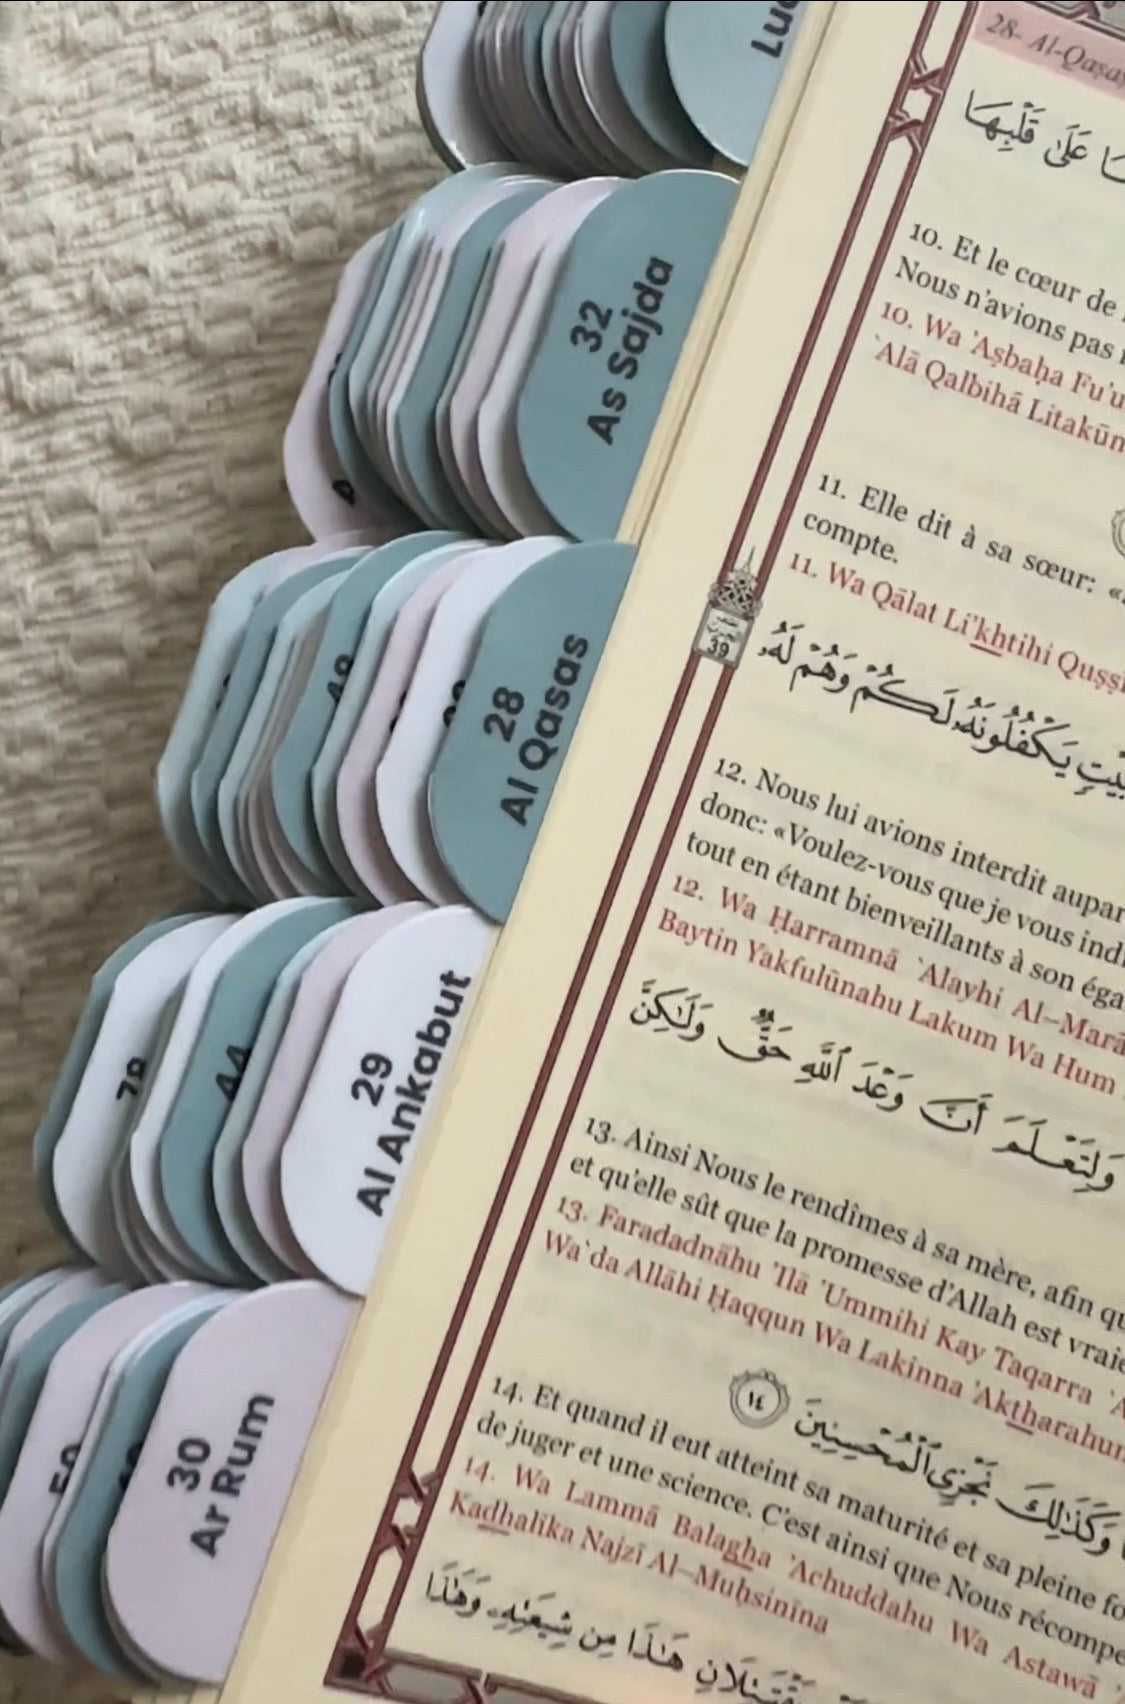 32
As Sajda
28
Al Qasas
29
Al Ankabut
30
Ar Rum
44
28- Al-Qaṣaṣ
عَلَىٰ قَلْبِهَا
10. Et le cœur de
Nous n'avions pas
10. Wa 'Aṣbaḥa Fu'u
`Alā Qalbihā Litakūn
11. Elle dit à sa sœur:
compte.
11. Wa Qālat Li'khtihi Quṣṣī
39
يَكْفُلُونَهُۥ لَكُمْ وَهُمْ لَهُۥ
12. Nous lui avions interdit aupar
donc: «Voulez-vous que je vous indi
tout en étant bienveillants à son éga
12. Wa Ḥarramnā `Alayhi Al-Marā
Baytin Yakfulūnahu Lakum Wa Hum
وَلِتَعْلَمَ أَنَّ وَعْدَ ٱللَّهِ حَقٌّ وَلَٰكِنَّ
13. Ainsi Nous le rendîmes à sa mère, afin qu
et qu'elle sût que la promesse d'Allah est vraie
13. Faradadnāhu 'Ilā 'Ummihi Kay Taqarra
Wa`da Allāhi Ḥaqqun Wa Lakinna 'Aktharahum
وَكَذَٰلِكَ نَجْزِى ٱلْمُحْسِنِينَ ١٤
14. Et quand il eut atteint sa maturité et sa pleine fo
de juger et une science. C'est ainsi que Nous récompe
14. Wa Lammā Balagha 'Achuddahu Wa Astawā
Kadhalika Najzī Al-Muḥsinīna
يَقْتَتِلَانِ هَٰذَا مِن شِيعَتِهِۦ وَهَٰذَا